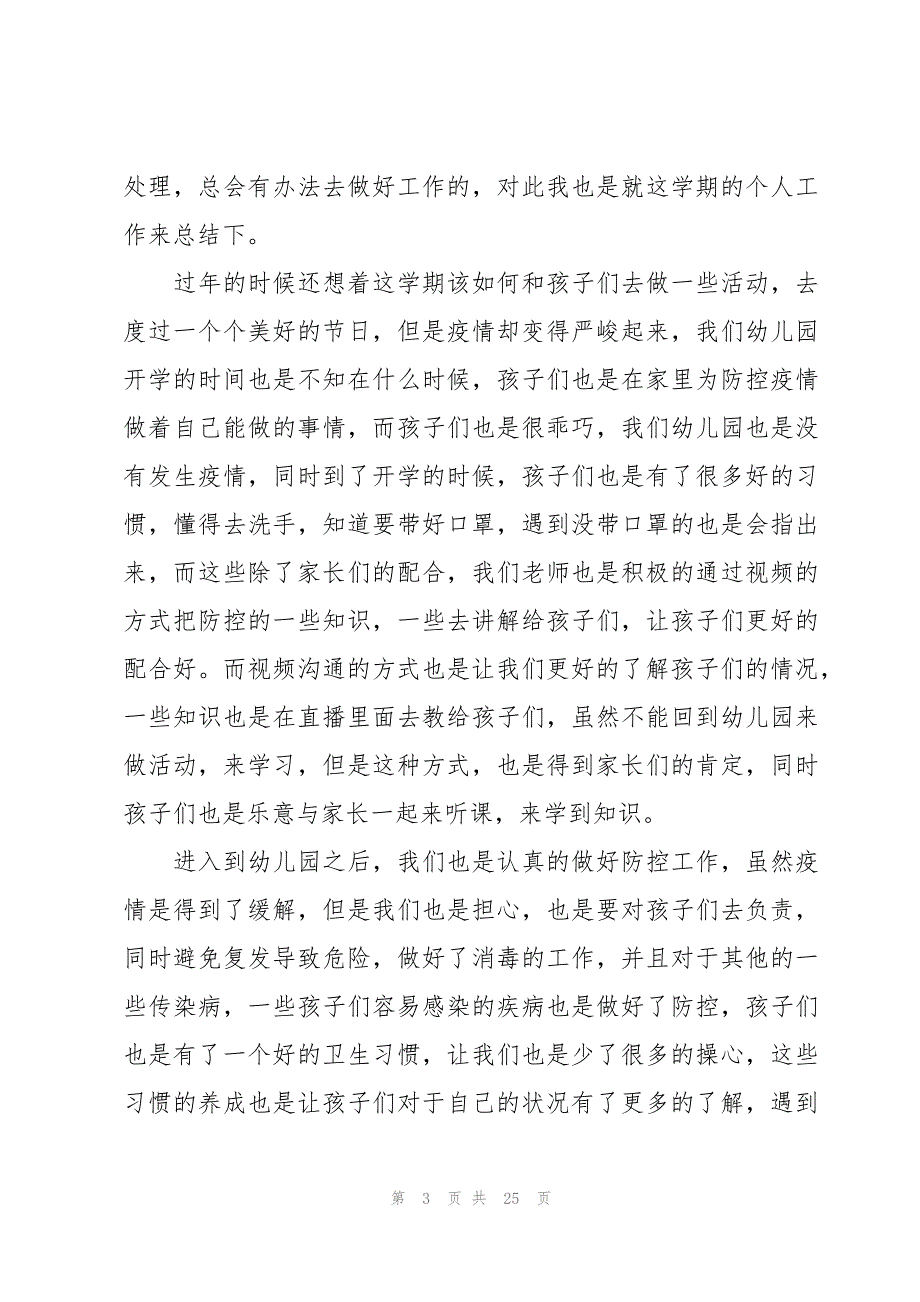 处理，总会有办法去做好工作的，对此我也是就这学期的个人工
作来总结下。
过年的时候还想着这学期该如何和孩子们去做一些活动，去
度过一个个美好的节日，但是疫情却变得严峻起来，我们幼儿园
开学的时间也是不知在什么时候，孩子们也是在家里为防控疫情
做着自己能做的事情，而孩子们也是很乖巧，我们幼儿园也是没
有发生疫情，同时到了开学的时候，孩子们也是有了很多好的习
惯，懂得去洗手，知道要带好口罩，遇到没带口罩的也是会指出
来，而这些除了家长们的配合，我们老师也是积极的通过视频的
方式把防控的一些知识，一些去讲解给孩子们，让孩子们更好的
配合好。而视频沟通的方式也是让我们更好的了解孩子们的情况，
一些知识也是在直播里面去教给孩子们，虽然不能回到幼儿园来
做活动，来学习，但是这种方式，也是得到家长们的肯定，同时
孩子们也是乐意与家长一起来听课，来学到知识。
进入到幼儿园之后，我们也是认真的做好防控工作，虽然疫
情是得到了缓解，但是我们也是担心，也是要对孩子们去负责，
同时避免复发导致危险，做好了消毒的工作，并且对于其他的一
些传染病，一些孩子们容易感染的疾病也是做好了防控，孩子们
也是有了一个好的卫生习惯，让我们也是少了很多的操心，这些
习惯的养成也是让孩子们对于自己的状况有了更多的了解，遇到
第 3 页 共 25 页